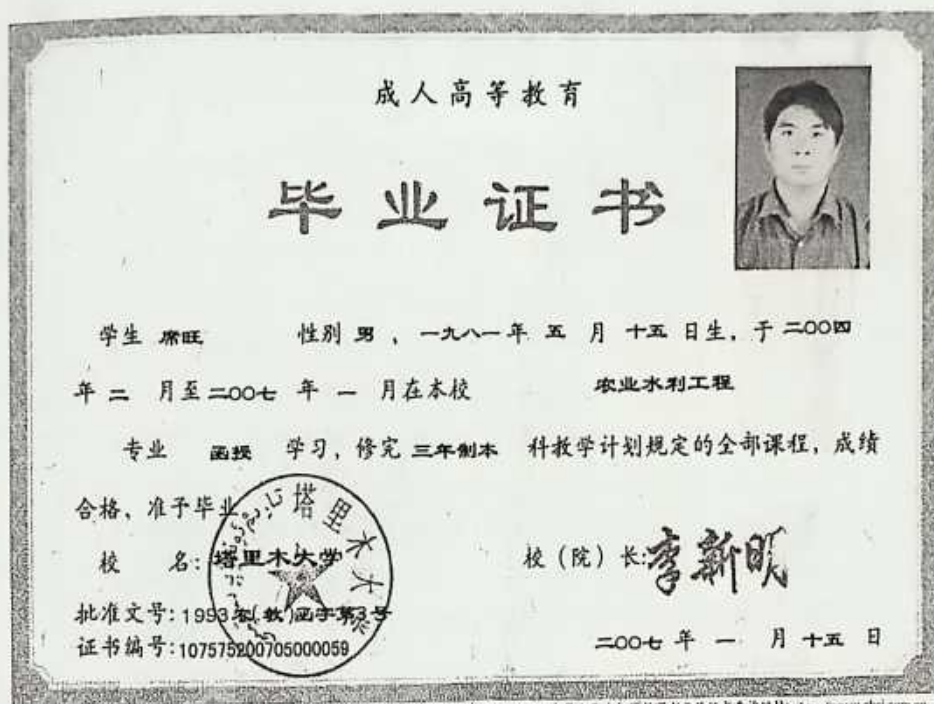 成人高等教育
毕业证书
学生 席旺 性别 男 ， 一九八一 年 五 月 十五 日生，于 二00四
年 二 月至 二00七 年 一 月在本校 农业水利工程
专业 函授 学习，修完 三年制本 科教学计划规定的全部课程，成绩
合格，准予毕业
校 名：塔里木大学
校（院）长：李新明
批准文号：1993农(教)函字第3号
证书编号：107575200705000059
二00七 年 一 月 十五 日
塔里木大学